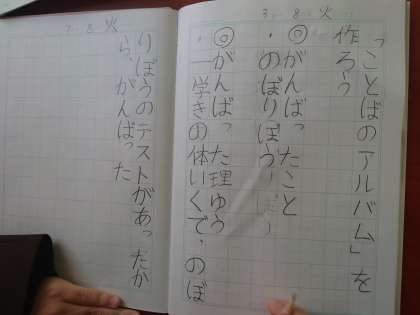 3. 8. 火
「ことばのアルバム」を
作ろう
◎がんばったこと
・のぼりぼう
◎がんばった理ゆう
・一学きの体いくで、のぼ
7. 8. 火
りぼうのテストがあったか
ら、がんばった